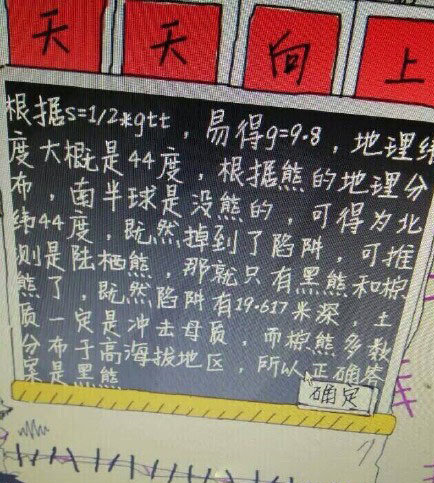 天天向上
根据s=1/2*gtt，易得g=9.8，地理纬
度大概是44度，根据熊的地理分
布，南半球是没熊的，可得为北
纬44度，既然掉到了陷阱，可推
测是陆栖熊，那就只有黑熊和棕
熊了，既然陷阱有19.617米深，土
质一定是冲击母质，而棕熊多数
分布于高海拔地区，所以正确答
案是黑熊
确定